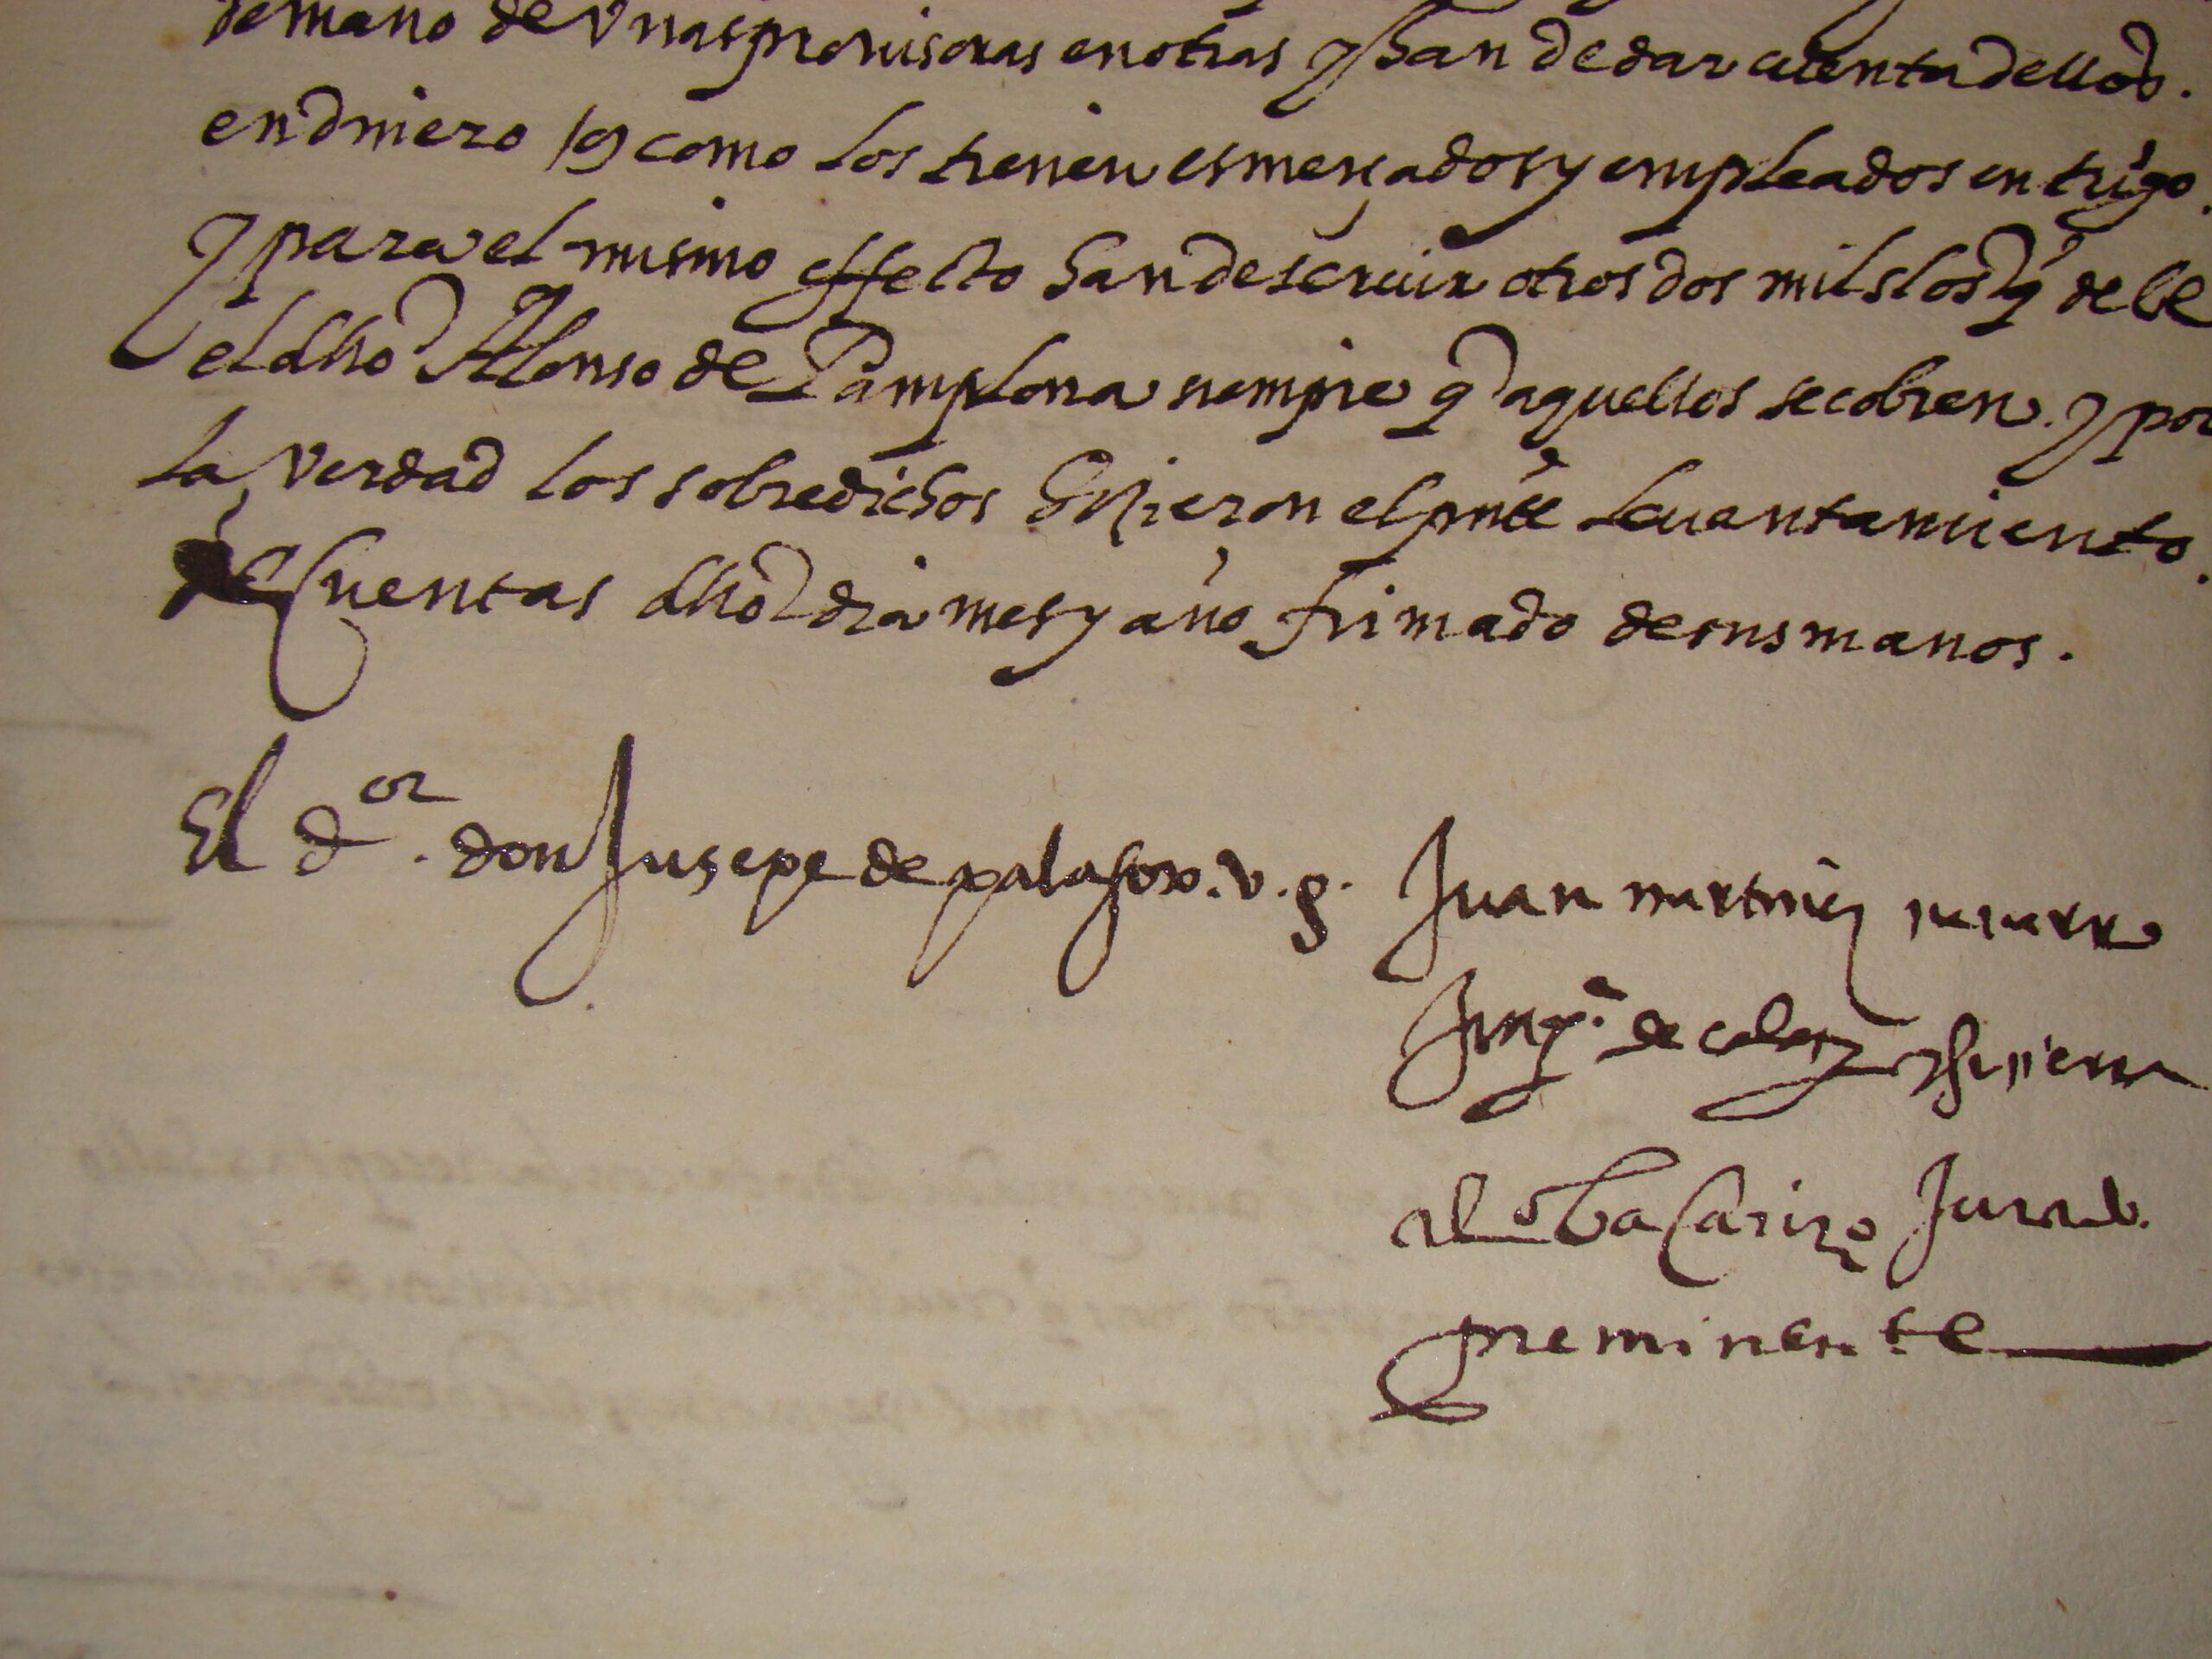 de mano de vnas provisoras en otras y han de dar cuenta dellos.
en dinero y como los tienen esmerçados y empleados en trigo.
y para el mismo effecto han de seruir otros dos mil slos q debe
el dho Alonso de Pamplona siempre q aquellos se cobren. y por
la verdad los sobredichos hizieron el pnte leuantamiento.
de Cuentas dho dia mes y año firmado de sus manos.
El dor. don Jusepe de palafox. v. g.
Juan martinez
de
Jurado.
preminente